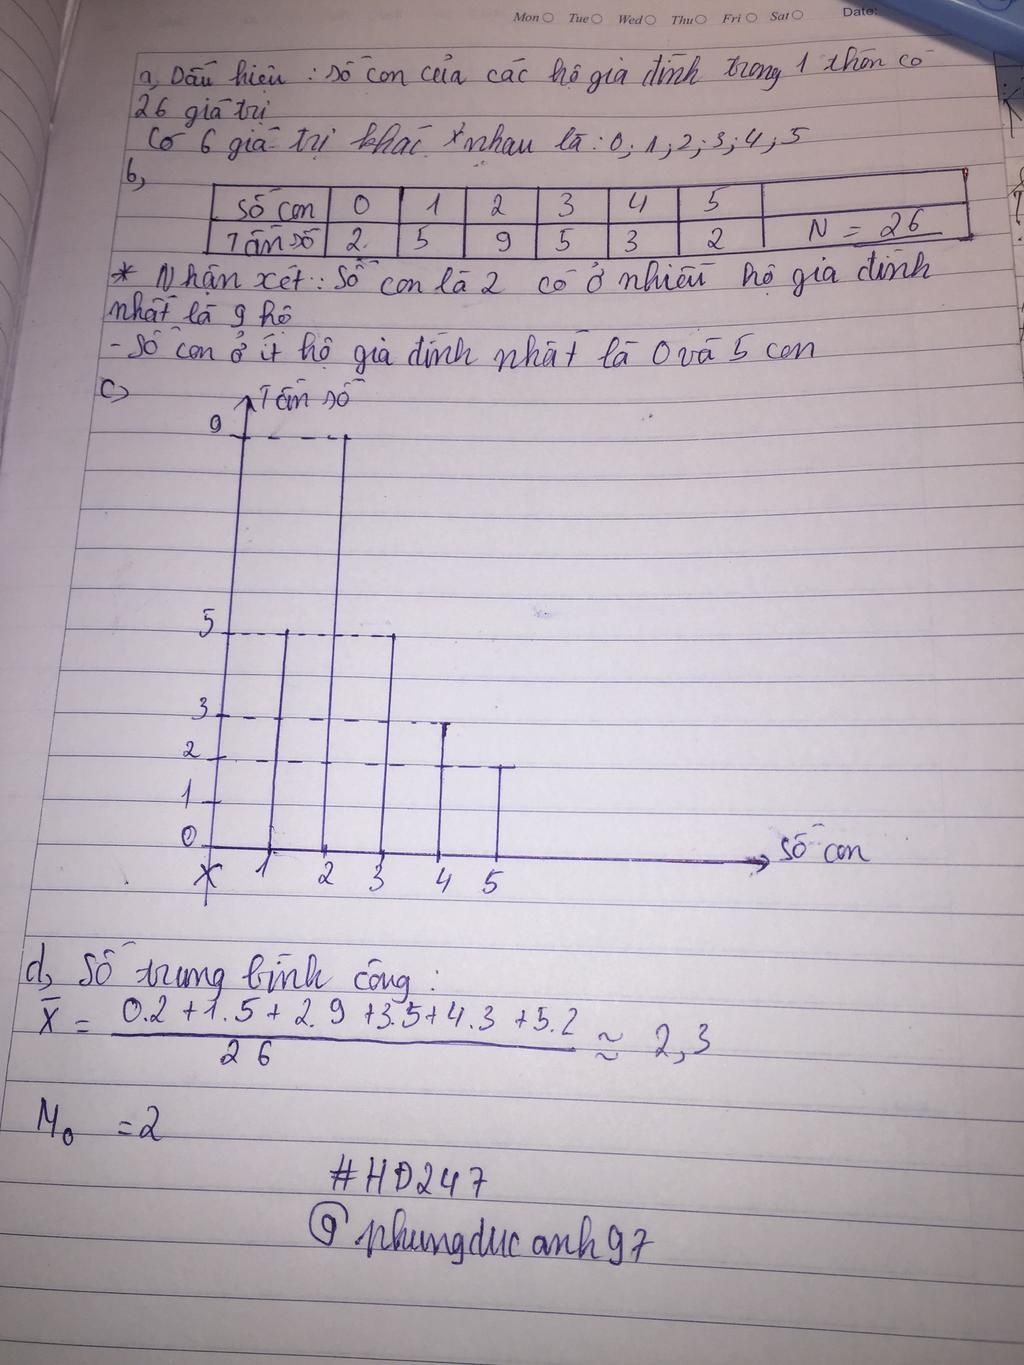 Mon Tue Wed Thu Fri Sat Date:
a, Dấu hiệu : số con của các hộ gia đình trong 1 thôn có
26 giá trị
Có 6 giá trị khác nhau là : 0; 1; 2; 3; 4; 5
b,
Số con 0 1 2 3 4 5
Tần số 2 5 9 5 3 2 N = 26
* Nhận xét : Số con là 2 có ở nhiều hộ gia đình
nhất là 9 hộ
- Số con ở ít hộ gia đình nhất là 0 và 5 con
c)
Tần số
9
5
3
2
1
0
X 1 2 3 4 5
Số con
d, Số trung bình cộng :
X̄ = 0.2 + 1.5 + 2.9 + 3.5 + 4.3 + 5.2 ≈ 2,3
26
M₀ = 2
#HD247
@phungducanh97